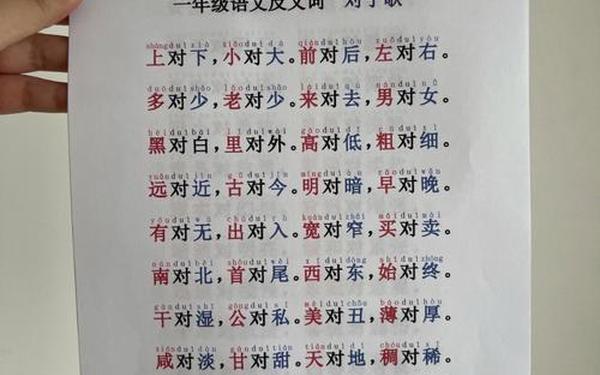 一年级语文反义词 对子歌
shàng duì xià xiǎo duì dà qián duì hòu zuǒ duì yòu
上对下，小对大。前对后，左对右。
duō duì shǎo lǎo duì shào lái duì qù nán duì nǚ
多对少，老对少。来对去，男对女。
hēi duì bái lǐ duì wài gāo duì dī cū duì xì
黑对白，里对外。高对低，粗对细。
yuǎn duì jìn gǔ duì jīn míng duì àn zǎo duì wǎn
远对近，古对今。明对暗，早对晚。
yǒu duì wú chū duì rù kuān duì zhǎi mǎi duì mài
有对无，出对入。宽对窄，买对卖。
nán duì běi shǒu duì wěi xī duì dōng shǐ duì zhōng
南对北，首对尾。西对东，始对终。
gān duì shī gōng duì sī měi duì chǒu báo duì hòu
干对湿，公对私。美对丑，薄对厚。
咸对淡，甘对甜。天对地，稠对稀。